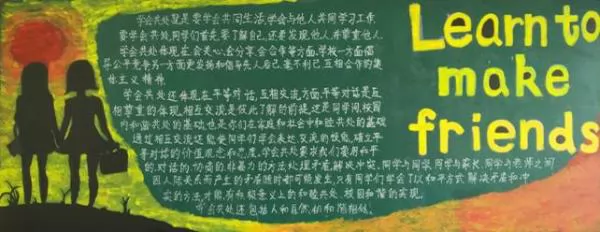 学会共处就是要学会共同生活,学会与他人共同学习工作
要学会共处,同学们首先要了解自己,还要发现他人,尊重他人
学会共处体现在会关心、会分享、会合作等方面,学校一方面倡
导公平竞争另一方面更发扬和倡导先人后己,毫不利己互相合作的集
体主义精神
学会共处还体现在平等对话,互相交流方面,平等对话是互
相尊重的体现,相互交流是彼此了解的前提,这是同学间,校园
的和谐共处的基础,也是你们在家庭和社会中和睦共处的基础
通过相互交流还能使同学们学会表达,交流的技能,确立平
等对话的价值观念和态度,学会共处要求我们要用和平
的,对话的,协商的,非暴力的方法处理矛盾,解决冲突,同学与同学,同学与家长,同学与老师之间
因人际关系而产生的矛盾随时都可能发生,只有同学们学会了以和平方式解决矛盾和冲
突的方法,才能有积极意义上的和睦共处,校园和谐的实现。
学会共处还包括人和自然
Learn to
make
friends